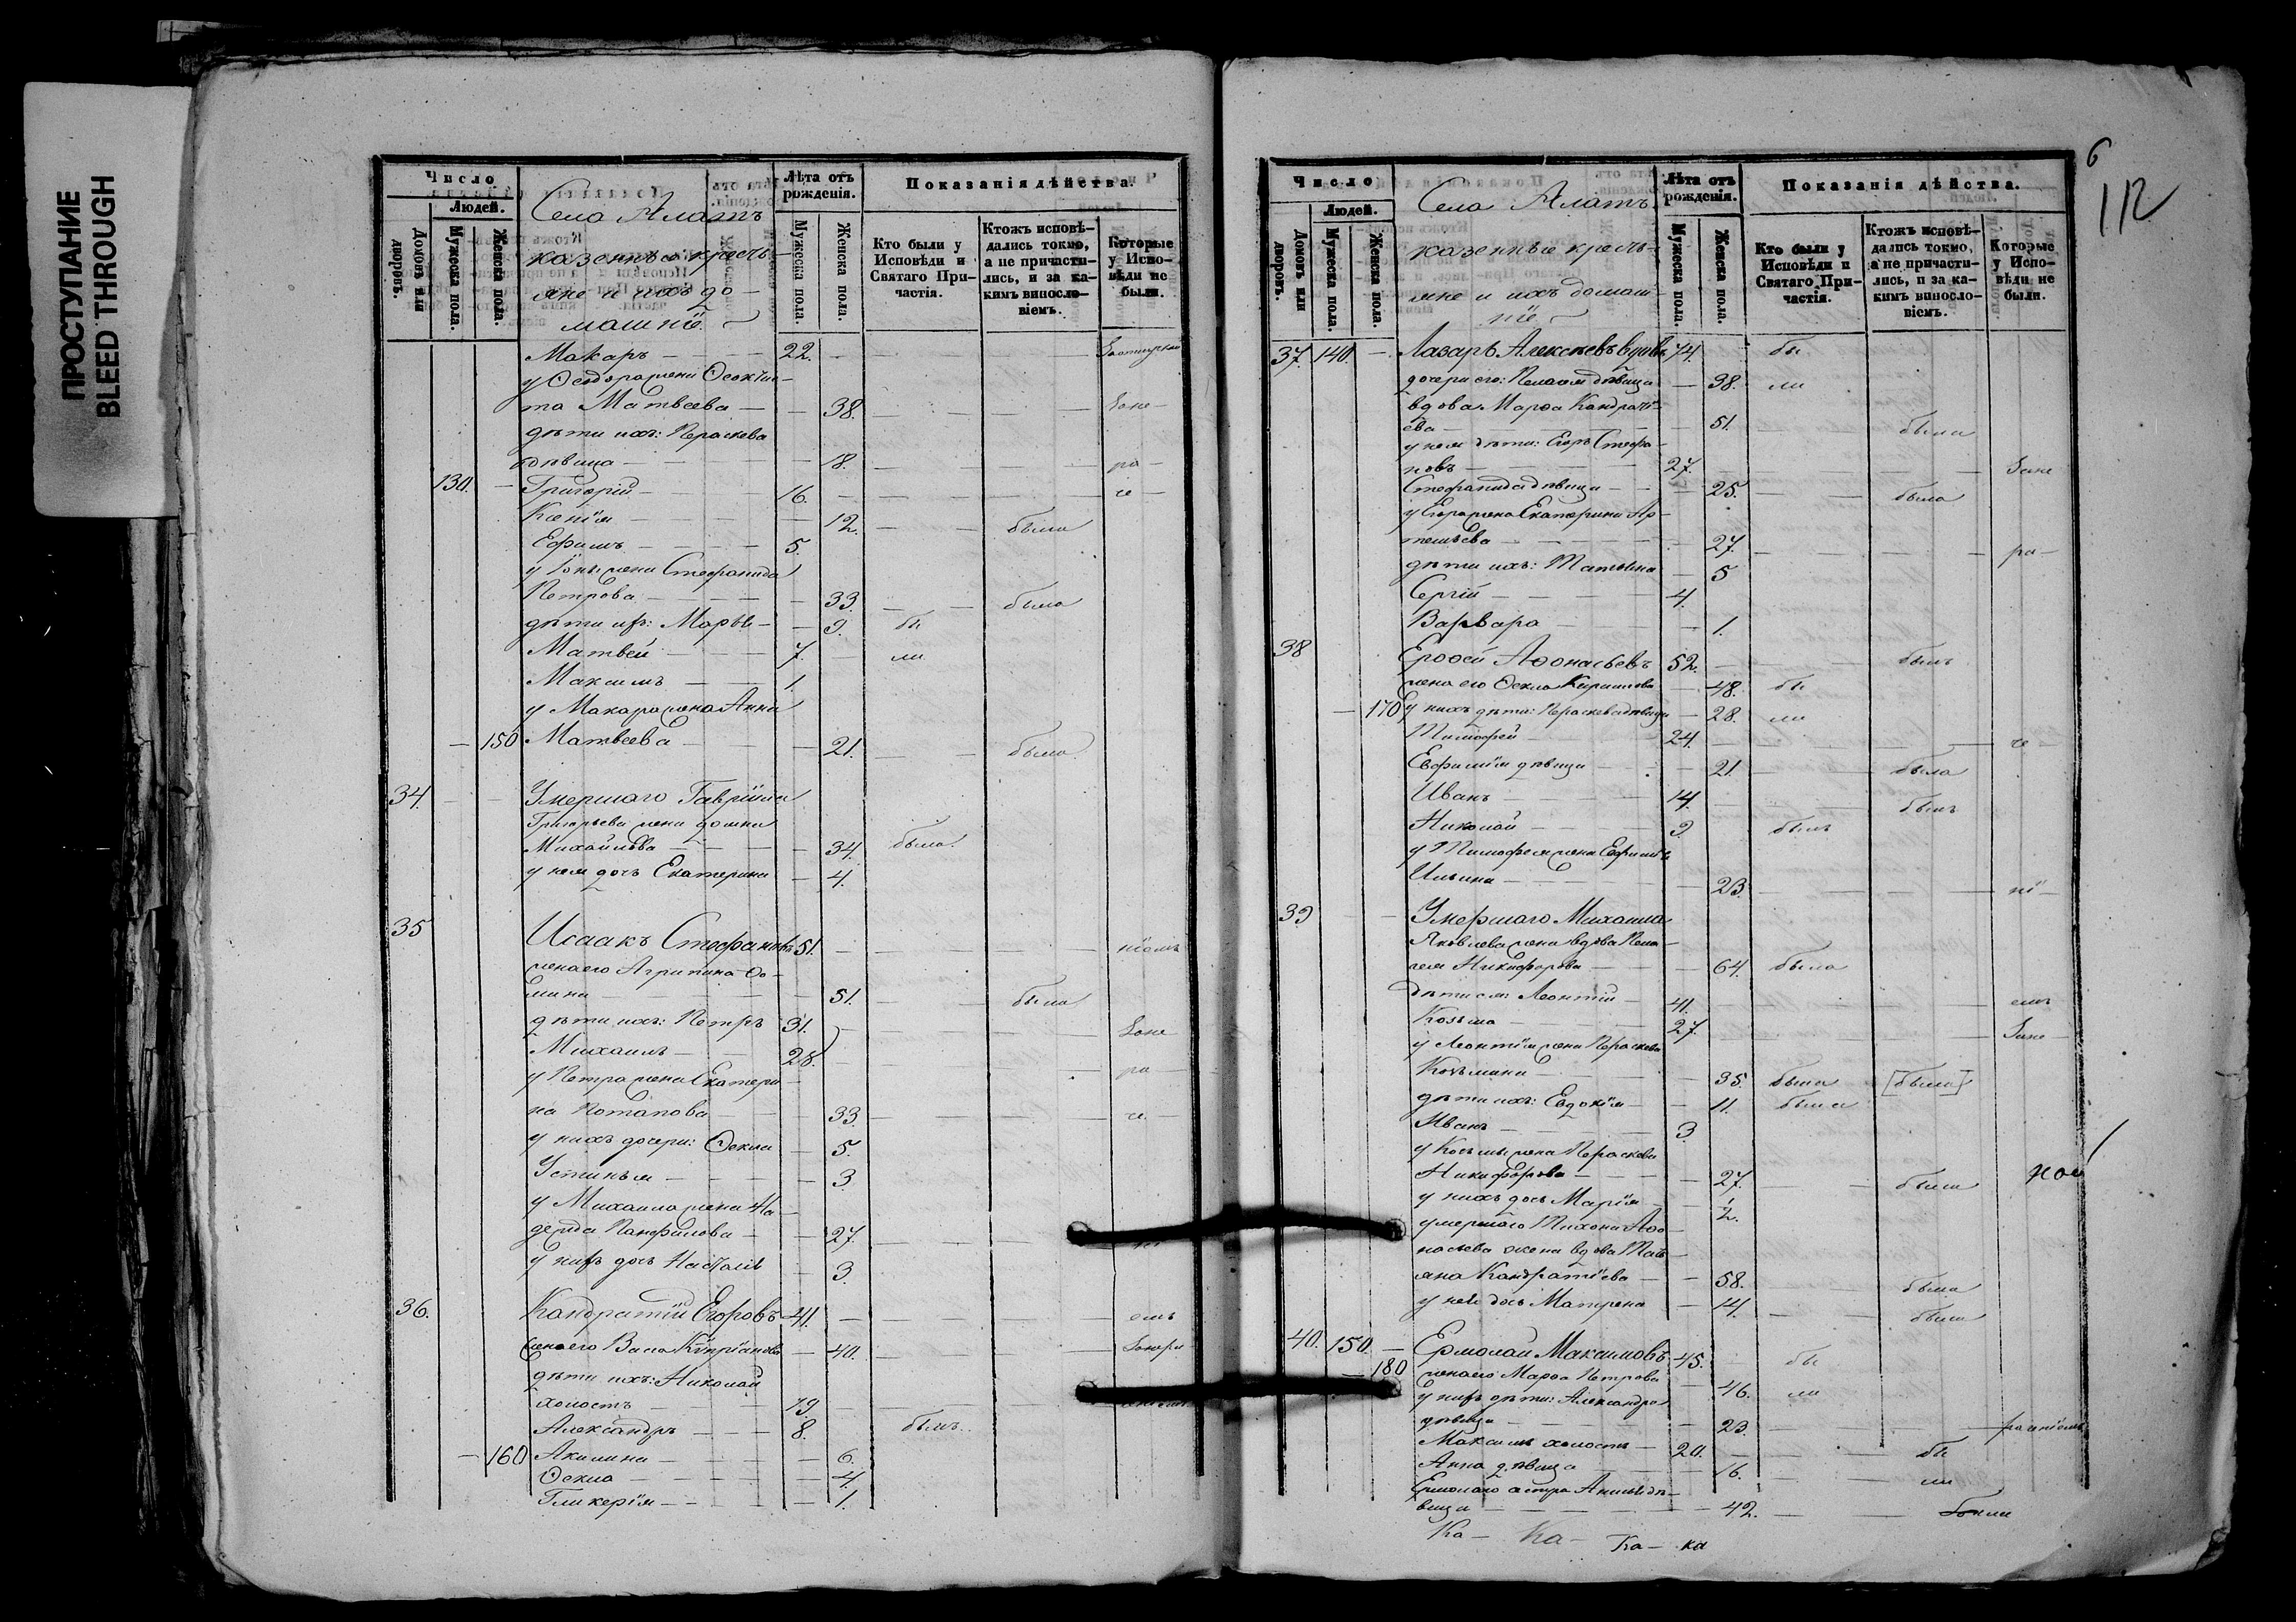 ПРОСТУПАНИЕ
BLEED THROUGH
Число
Людей.
Домовъ или дворовъ.
Мужеска пола.
Женска пола.
Села Алатъ
казенные кресть-
яне и ихъ до-
машніе
Лѣта отъ рожденія.
Мужеска пола.
Женска пола.
Показанія дѣйства.
Кто были у Исповѣди и Святаго Причастія.
Ктожъ исповѣдались токмо, а не причастились, и за какимъ винословіемъ.
Которые у Исповѣди не были.
Макаръ 22.
у Ѳеодора жена Ѳеокти-
та Матвеева 38. Зане
дѣти ихъ: Пераскева
дѣвица 18. ра
130. Григорій 16. че
Ксенія 12. была
Ефимъ 5.
у Іоны жена Стефанида
Петрова 33. была
дѣти их: Марья 9. бы
Матвей 7. ли
Максимъ 1.
у Макара жена Анна
150 Матвеева 21. была
34. Умершаго Гавріила
Григорьева жена домна
Михайлова 34. была
у нея дочь Екатерина 4.
35 Исаакъ Стефановъ 51. ніемъ
жена его Агрипина Ѳо-
мина 51. была
дѣти ихъ: Петръ 31. Зане
Михаилъ 28. ра
у Петра жена Екатери
на Потапова 33. че
у нихъ дочери: Ѳекла 5.
Устинья 3.
у Михаила жена На
дежда Панфилова 27.
у них дочь Наталія 3.
36. Кандратій Егоровъ 41. емъ
жена его Васса Кипріанова 40.
дѣти ихъ: Николай
холостъ 19.
Александръ 8. былъ
160 Акилина 6.
Ѳекла 4.
Гликерія 1.
6
112
Число
Людей.
Домовъ или дворовъ.
Мужеска пола.
Женска пола.
Села Алатъ
казенные кресть-
яне и ихъ домаш-
ніе
Лѣта отъ рожденія.
Мужеска пола.
Женска пола.
Показанія дѣйства.
Кто были у Исповѣди и Святаго Причастія.
Ктожъ исповѣдались токмо, а не причастились, и за какимъ винословіемъ.
Которые у Исповѣди не были.
37. 140. Лазарь Алексѣевъ вдовъ 74. бы
дочери его: Пелагея дѣвица 38. ли
вдова Марѳа Кандраті-
ева 51. была
у нея дѣти: Егоръ Стефа
новъ 27. Зане
Стефанида дѣвица 25. была
у Егора жена Екатерина Ар
темьева 27. ра
дѣти ихъ: Татьяна 5
Сергій 4.
Варвара 1.
38 Ероѳей Аѳонасьевъ 52. былъ
жена его Ѳекла Кирилова 48. бы
170 у нихъ дѣти: Пераскева дѣвица 28. ли
Тимофей 24. че
Евфимія дѣвица 21. была
Иванъ 14. былъ
Николай 9. былъ
у Тимофея жена Ефимія
Ильина 23. ні
39 Умершаго Михаила
Яковлева жена вдова Пела
гея Никифорова 64. была
дѣти ея: Леонтій 41. емъ
Козьма 27. Зане
у Леонтія жена Пераскева
Козьмина 35. была [была]
дѣти ихъ: Евдокія 11. была
Иванъ 3
у Козьмы жена Пераскева
Никифорова 27. была
у нихъ дочь Марія ½.
умершаго Тихона Аѳо
насьева жена вдова Тать
яна Кандратіева 58. была
у ней дочь Матрена 14. была
40. 150. Ермолай Максимовъ 45. бы
180 жена его Марѳа Петрова 46. ли
у них дѣти: Александра
дѣвица 23.
Максимъ холостъ 20. бы
Анна дѣвица 16. ли
Ермолаю сестра Анисья дѣ
вица 42. были
Ка- Ка- Ка- ка